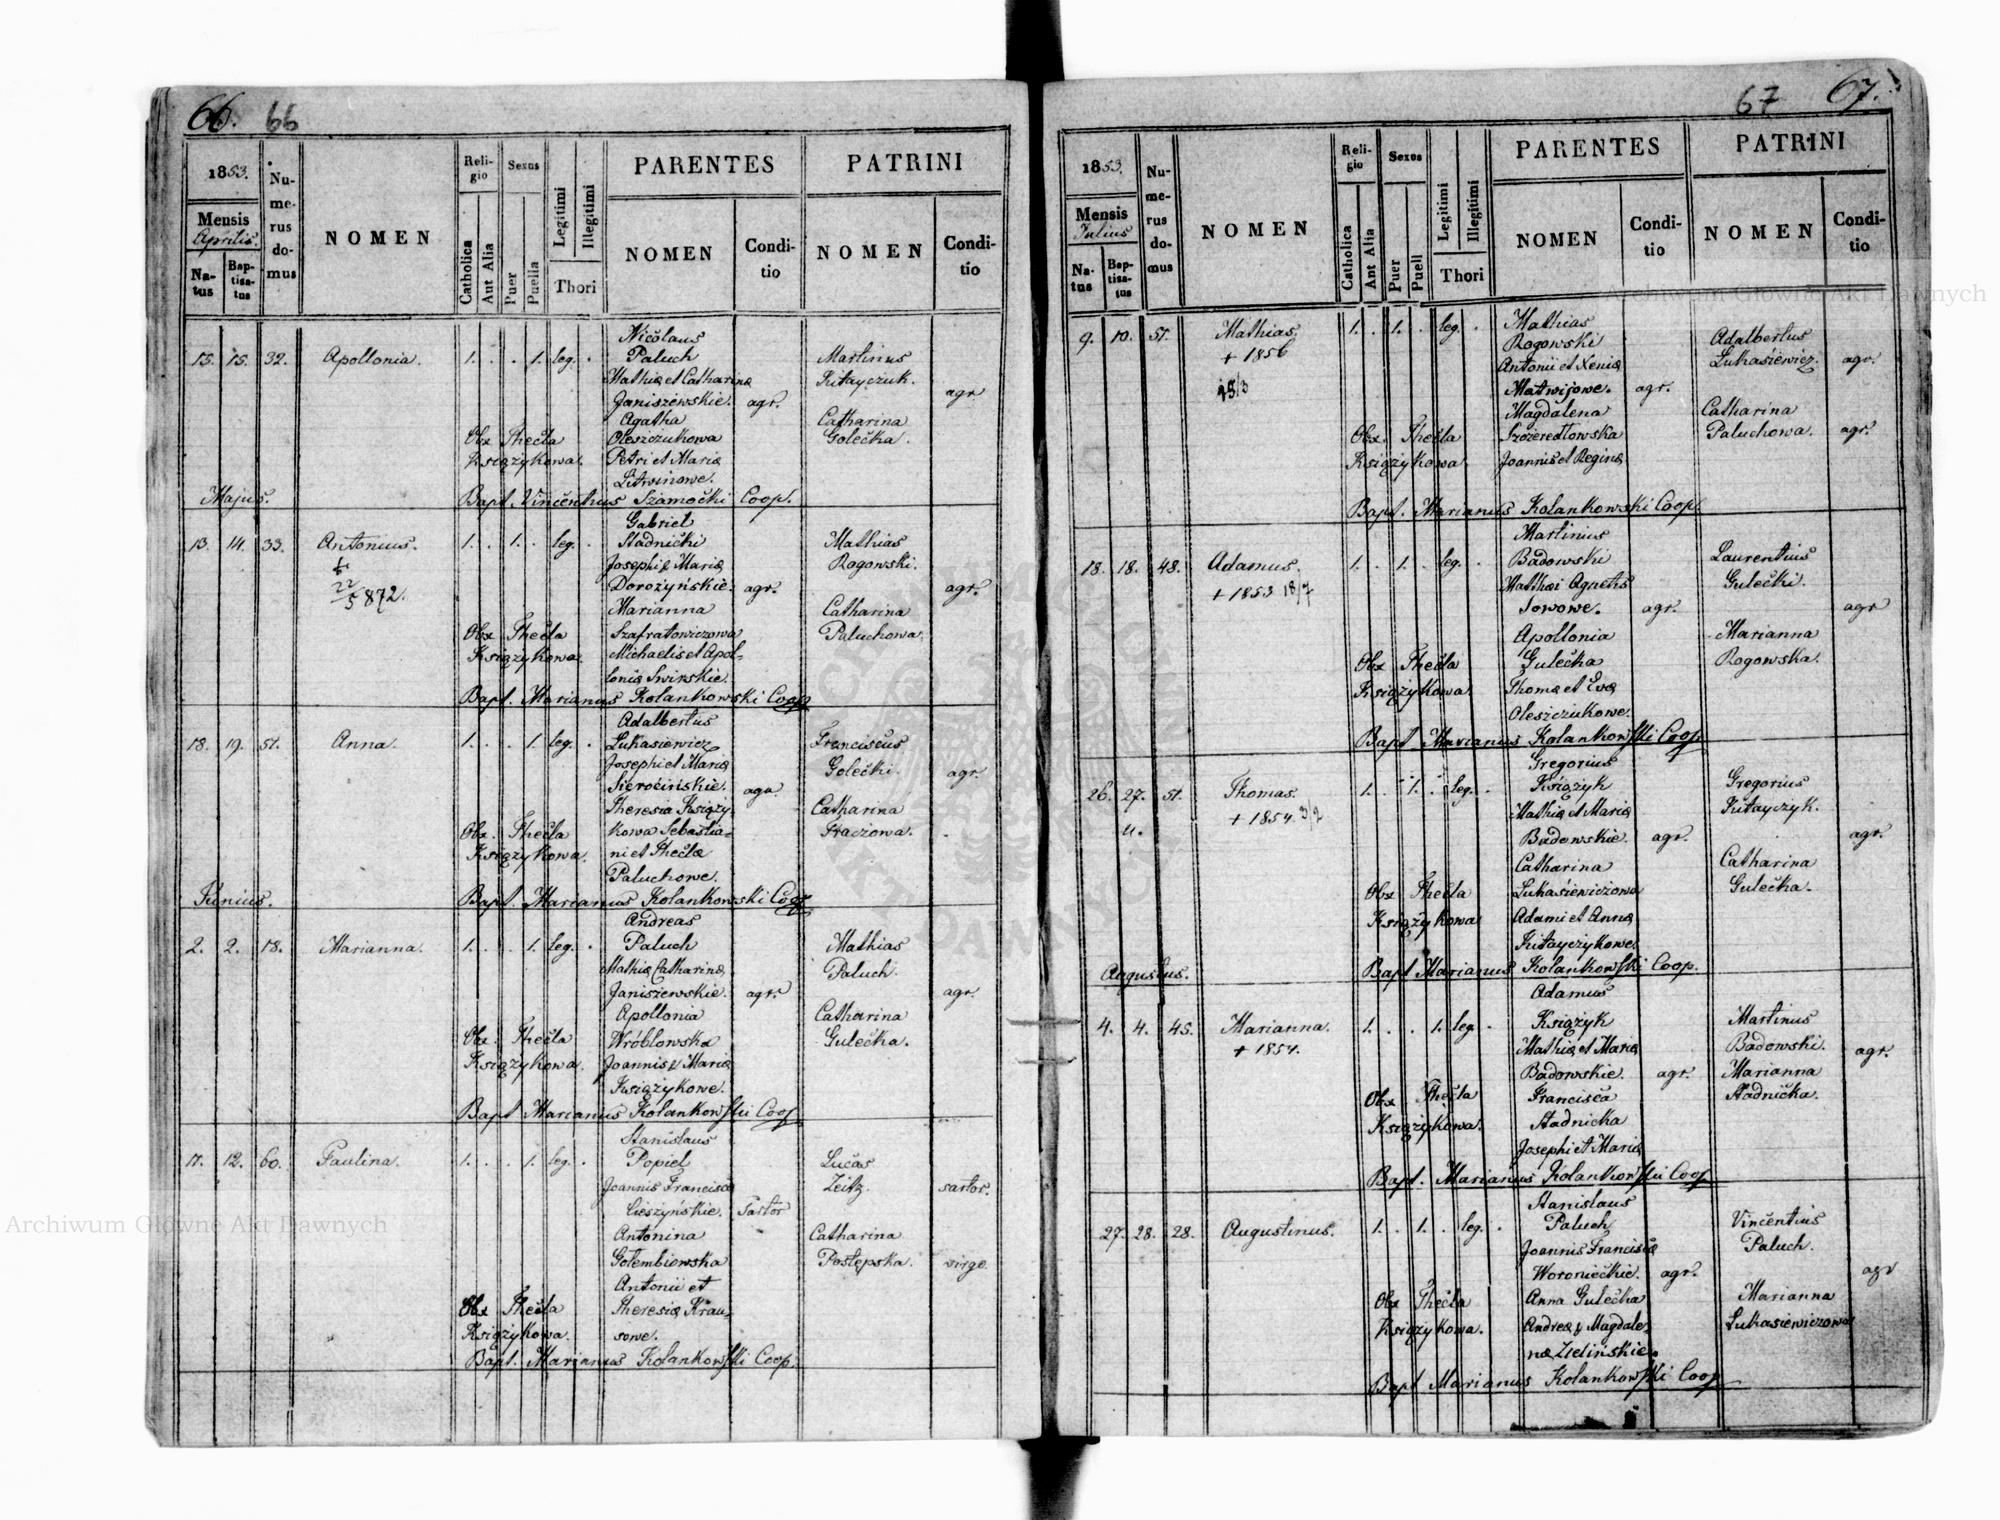 66. 66
1853.
Mensis
Aprilis.
Natus
Baptisatus
Numerus domus
NOMEN
Religio
Catholica
Aut Alia
Sexus
Puer
Puella
Legitimi
Illegitimi
Thori
PARENTES
NOMEN
Conditio
PATRINI
NOMEN
Conditio
Nicolaus
13. 15. 32. Apollonia. 1. . . 1. leg. . Paluch Martinus
Mathiæ et Catharinæ Kitayczuk.
Janiszewskie. agr. agr
Agatha Catharina
Obx Thecla Oleszczukowa Golecka.
Książykowa. Petri et Mariæ
Litwinowe.
Majus. Bapt. Vincentius Szamocki Coop.
Gabriel
13. 14. 33. Antonius. 1. . 1. . leg. . Stadnicki Mathias
Josephi & Mariæ Rogowski.
22/5 872. Dorożyńskie. agr. agr.
Marianna Catharina
Obx Thecla Szafratowiczowa Paluchowa.
Książykowa. Michaelis et Apol-
loniæ Swirskie.
Bapt. Marianus Kolankowski Coop
Adalbertus
18. 19. 51. Anna. 1. . . 1. leg. . Łukasiewicz Franciscus
Josephi et Mariæ Golecki.
Sierocińskie. agr. agr.
Theresia Książy- Catharina
Obx. Thecla kowa Sebastia- Traczowa.
Książykowa. ni et Theclæ
Paluchowe.
Junius. Bapt. Marianus Kolankowski Coop
Andreas
2. 2. 18. Marianna. 1. . . 1. leg. . Paluch Mathias
Mathiæ Catharinæ Paluch.
Janiszewskie. agr. agr.
Apollonia Catharina
Obx. Thecla Wróblowska Gulecka.
Książykowa. Joannis & Mariæ
Książykowe.
Bapt Marianus Kolankowski Coop
Stanislaus
11. 12. 60. Paulina. 1. . . 1. leg. . Popiel Lucas
Joannis Franciscæ Zeitz. sartor.
Cieszyńskie. Sartor
Antonina Catharina
Gołembiowska Postępska. virgo.
Antonii et
Obx Thecla Theresiæ Krau-
Książykowa. sowe.
Bapt. Marianus Kolankowski Coop.
67 67.
1853.
Mensis
Julius
Natus
Baptisatus
Numerus domus
NOMEN
Religio
Catholica
Aut Alia
Sexus
Puer
Puell
Legitimi
Illegitimi
Thori
PARENTES
NOMEN
Conditio
PATRINI
NOMEN
Conditio
9. 10. 51. Mathias. 1. . 1. . leg. . Mathias Adalbertus
+ 1856 Rogowski Łukasiewicz. agr.
Antonii et Xeniæ
Matwijowe. agr.
Magdalena Catharina
Obx. Thecla Szczeredłowska Paluchowa. agr.
Książykowa. Joannis et Reginæ
Bapt. Marianus Kolankowski Coop.
Martinus
18. 18. 48. Adamus. 1. . 1. . leg. . Badowski Laurentius
+ 1853 18/7 Matthæi Agnetis Gulecki.
Sowowe. agr. agr
Apollonia Marianna
Obx Thecla Gulecka Rogowska.
Książykowa Thomæ et Evæ
Oleszczukowe.
Bapt Marianus Kolankowski Coop
Gregorius
26. 27. 51. Thomas. 1. . 1. . leg. . Książyk Gregorius
+ 1854. 3/2 Mathiæ et Mariæ Kitayczyk.
Badowskie. agr. agr.
Catharina Catharina
Obx Thecla Łukasiewiczowa Gulecka.
Książykowa Adami et Annæ
Kitayczykowe.
Augustus. Bapt Marianus Kolankowski Coop.
Adamus
4. 4. 45. Marianna. 1. . . 1. leg. . Książyk Martinus
+ 1854. Mathiæ et Mariæ Badowski. agr.
Badowskie. agr. Marianna
Obx Thecla Francisca Stadnicka.
Książykowa. Stadnicka
Josephi et Mariæ
Bapt. Marianus Kolankowski Coop
Stanislaus
27. 28. 28. Augustinus. 1. . 1. . leg. . Paluch Vincentius
Joannis Franciscæ Paluch.
Woronieckie. agr. agr
Obx Thecla Anna Gulecka Marianna
Książykowa. Andreæ & Magdale- Łukasiewiczowa
næ Zielińskie.
Bapt Marianus Kolankowski Coop
Archiwum Główne Akt Dawnych
Archiwum Główne Akt Dawnych